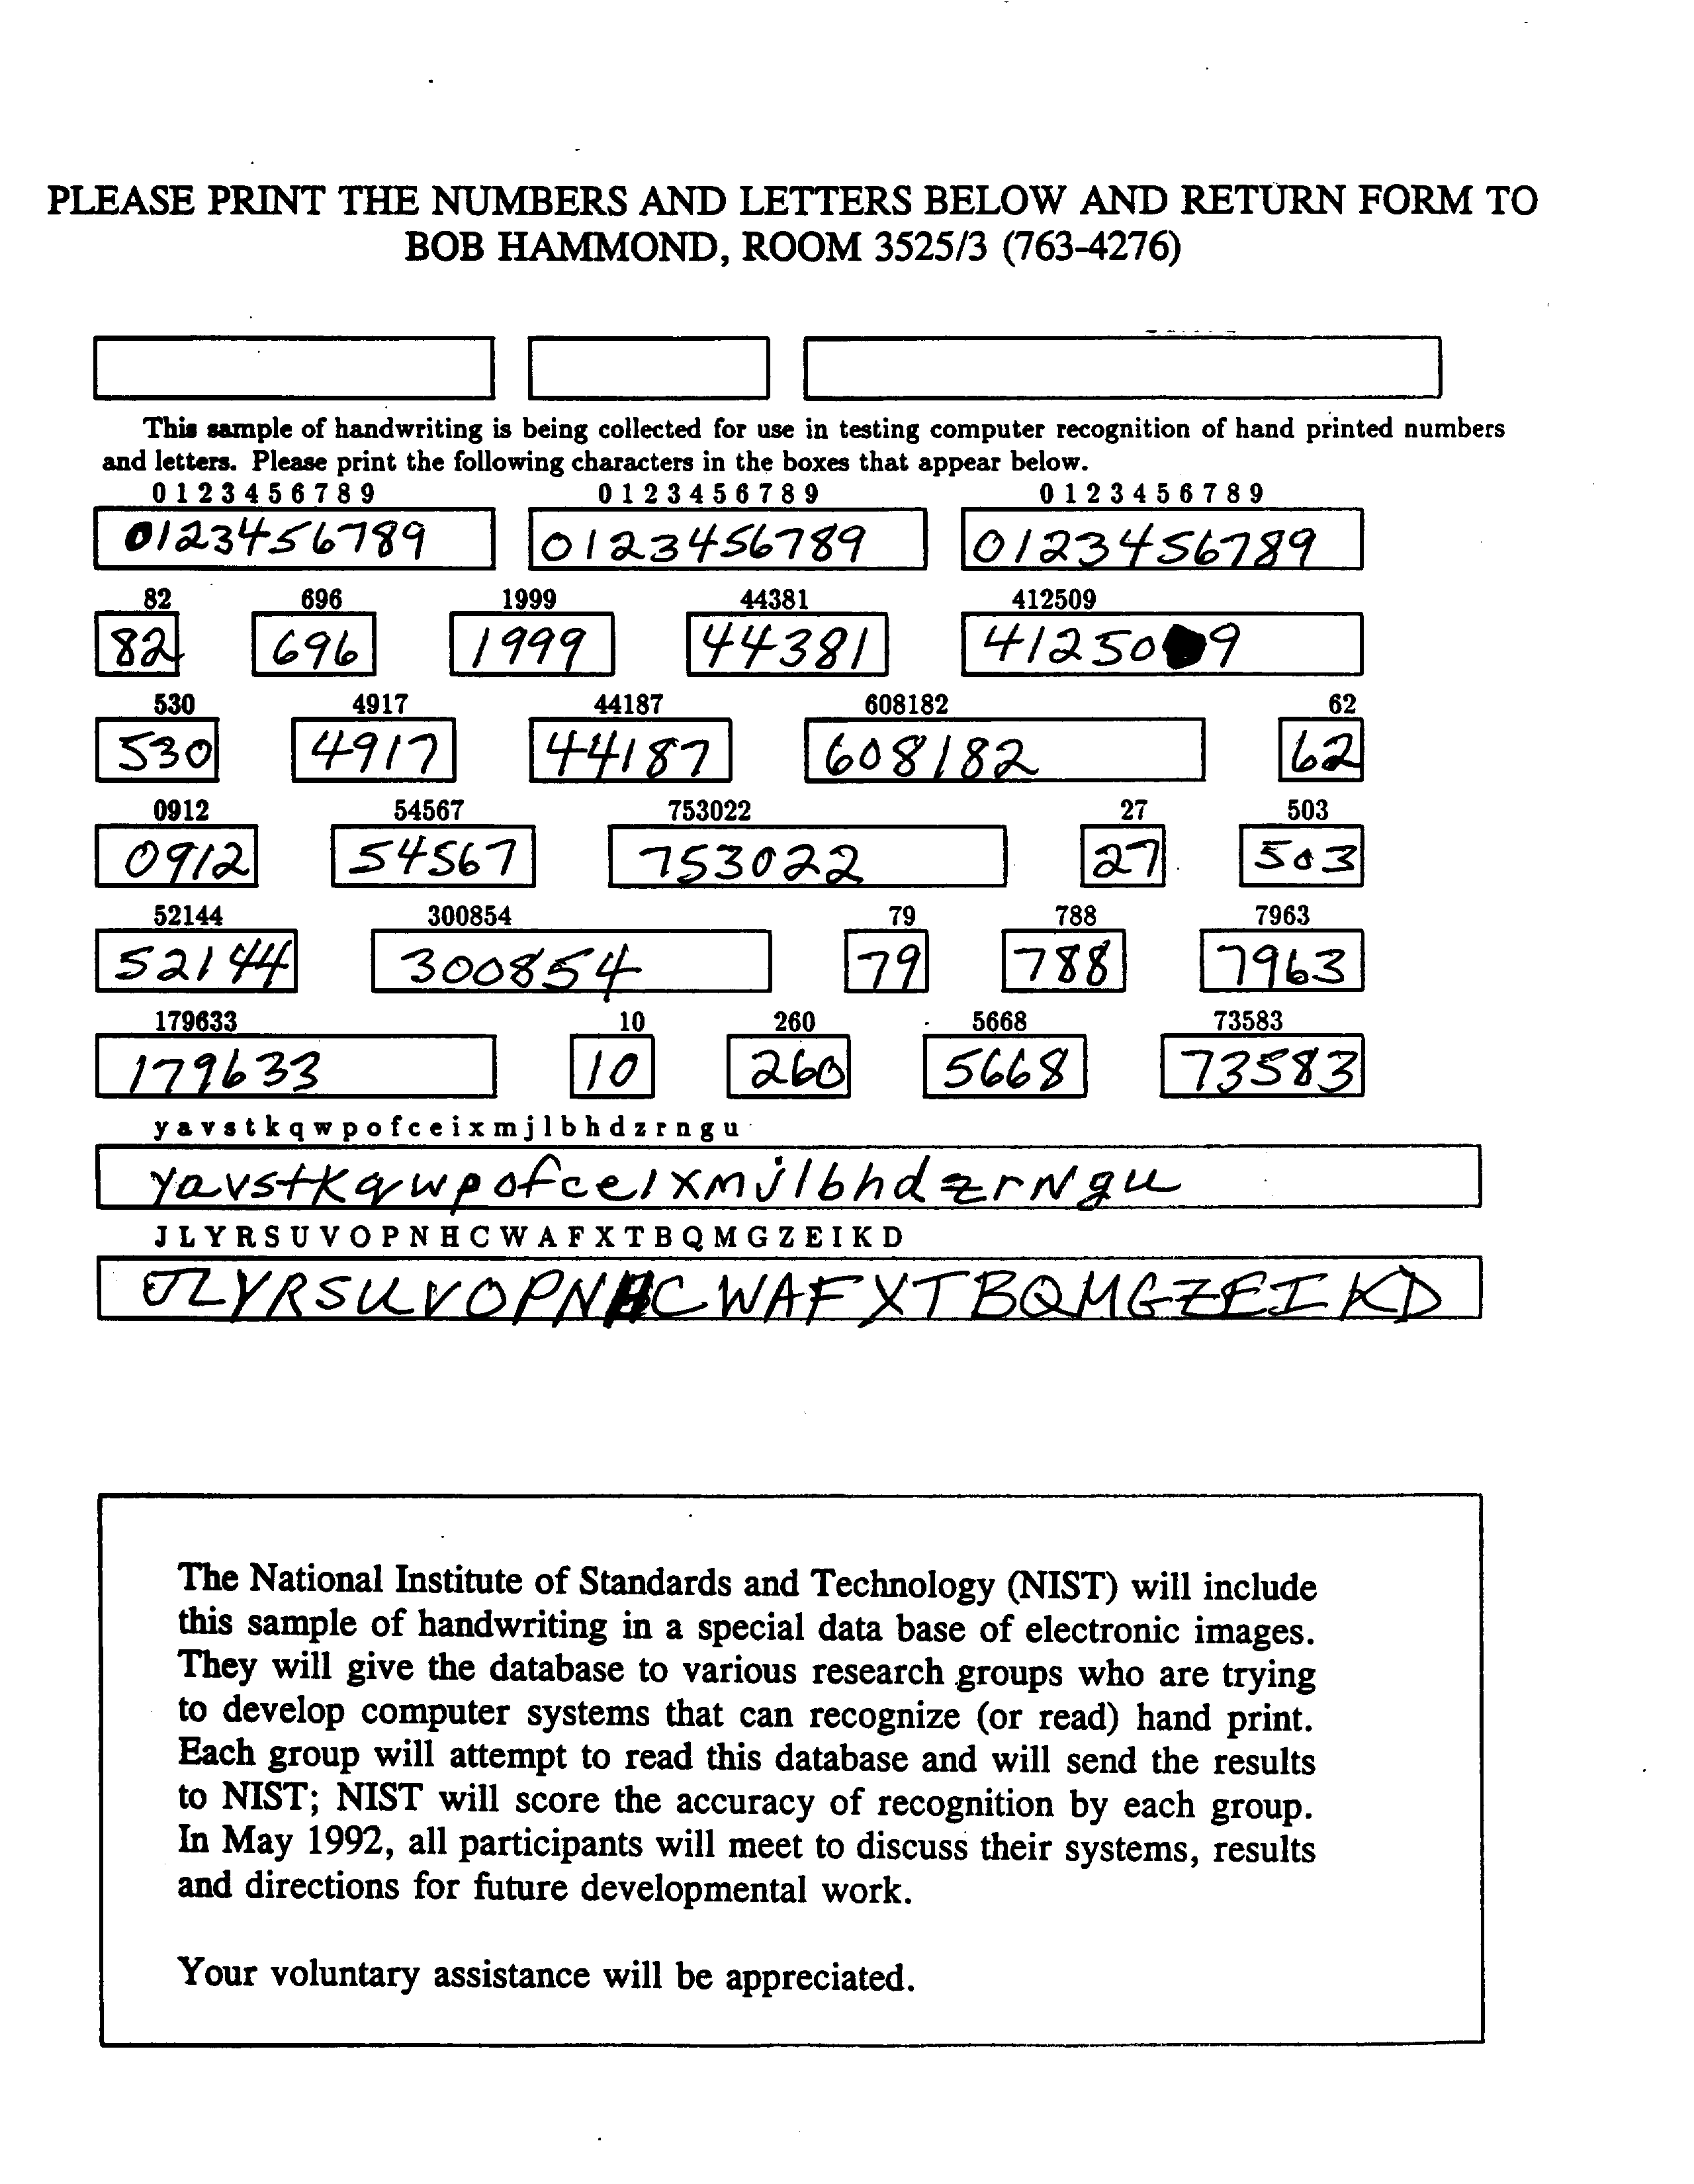 PLEASE PRINT THE NUMBERS AND LETTERS BELOW AND RETURN FORM TO
BOB HAMMOND, ROOM 3525/3 (763-4276)
This sample of handwriting is being collected for use in testing computer recognition of hand printed numbers
and letters. Please print the following characters in the boxes that appear below.
0 1 2 3 4 5 6 7 8 9 0 1 2 3 4 5 6 7 8 9 0 1 2 3 4 5 6 7 8 9
0123456789 0123456789 0123456789
82 696 1999 44381 412509
82 696 1999 44381 412509
530 4917 44187 608182 62
530 4917 44187 608182 62
0912 54567 753022 27 503
0912 54567 753022 27 503
52144 300854 79 788 7963
52144 300854 79 788 7963
179633 10 260 5668 73583
179633 10 260 5668 73583
y a v s t k q w p o f c e i x m j l b h d z r n g u
yavstkqwpofceixmjlbhdzrNgu
J L Y R S U V O P N H C W A F X T B Q M G Z E I K D
JLYRSUVOPNHCWAFXTBQMGZEIKD
The National Institute of Standards and Technology (NIST) will include
this sample of handwriting in a special data base of electronic images.
They will give the database to various research groups who are trying
to develop computer systems that can recognize (or read) hand print.
Each group will attempt to read this database and will send the results
to NIST; NIST will score the accuracy of recognition by each group.
In May 1992, all participants will meet to discuss their systems, results
and directions for future developmental work.
Your voluntary assistance will be appreciated.